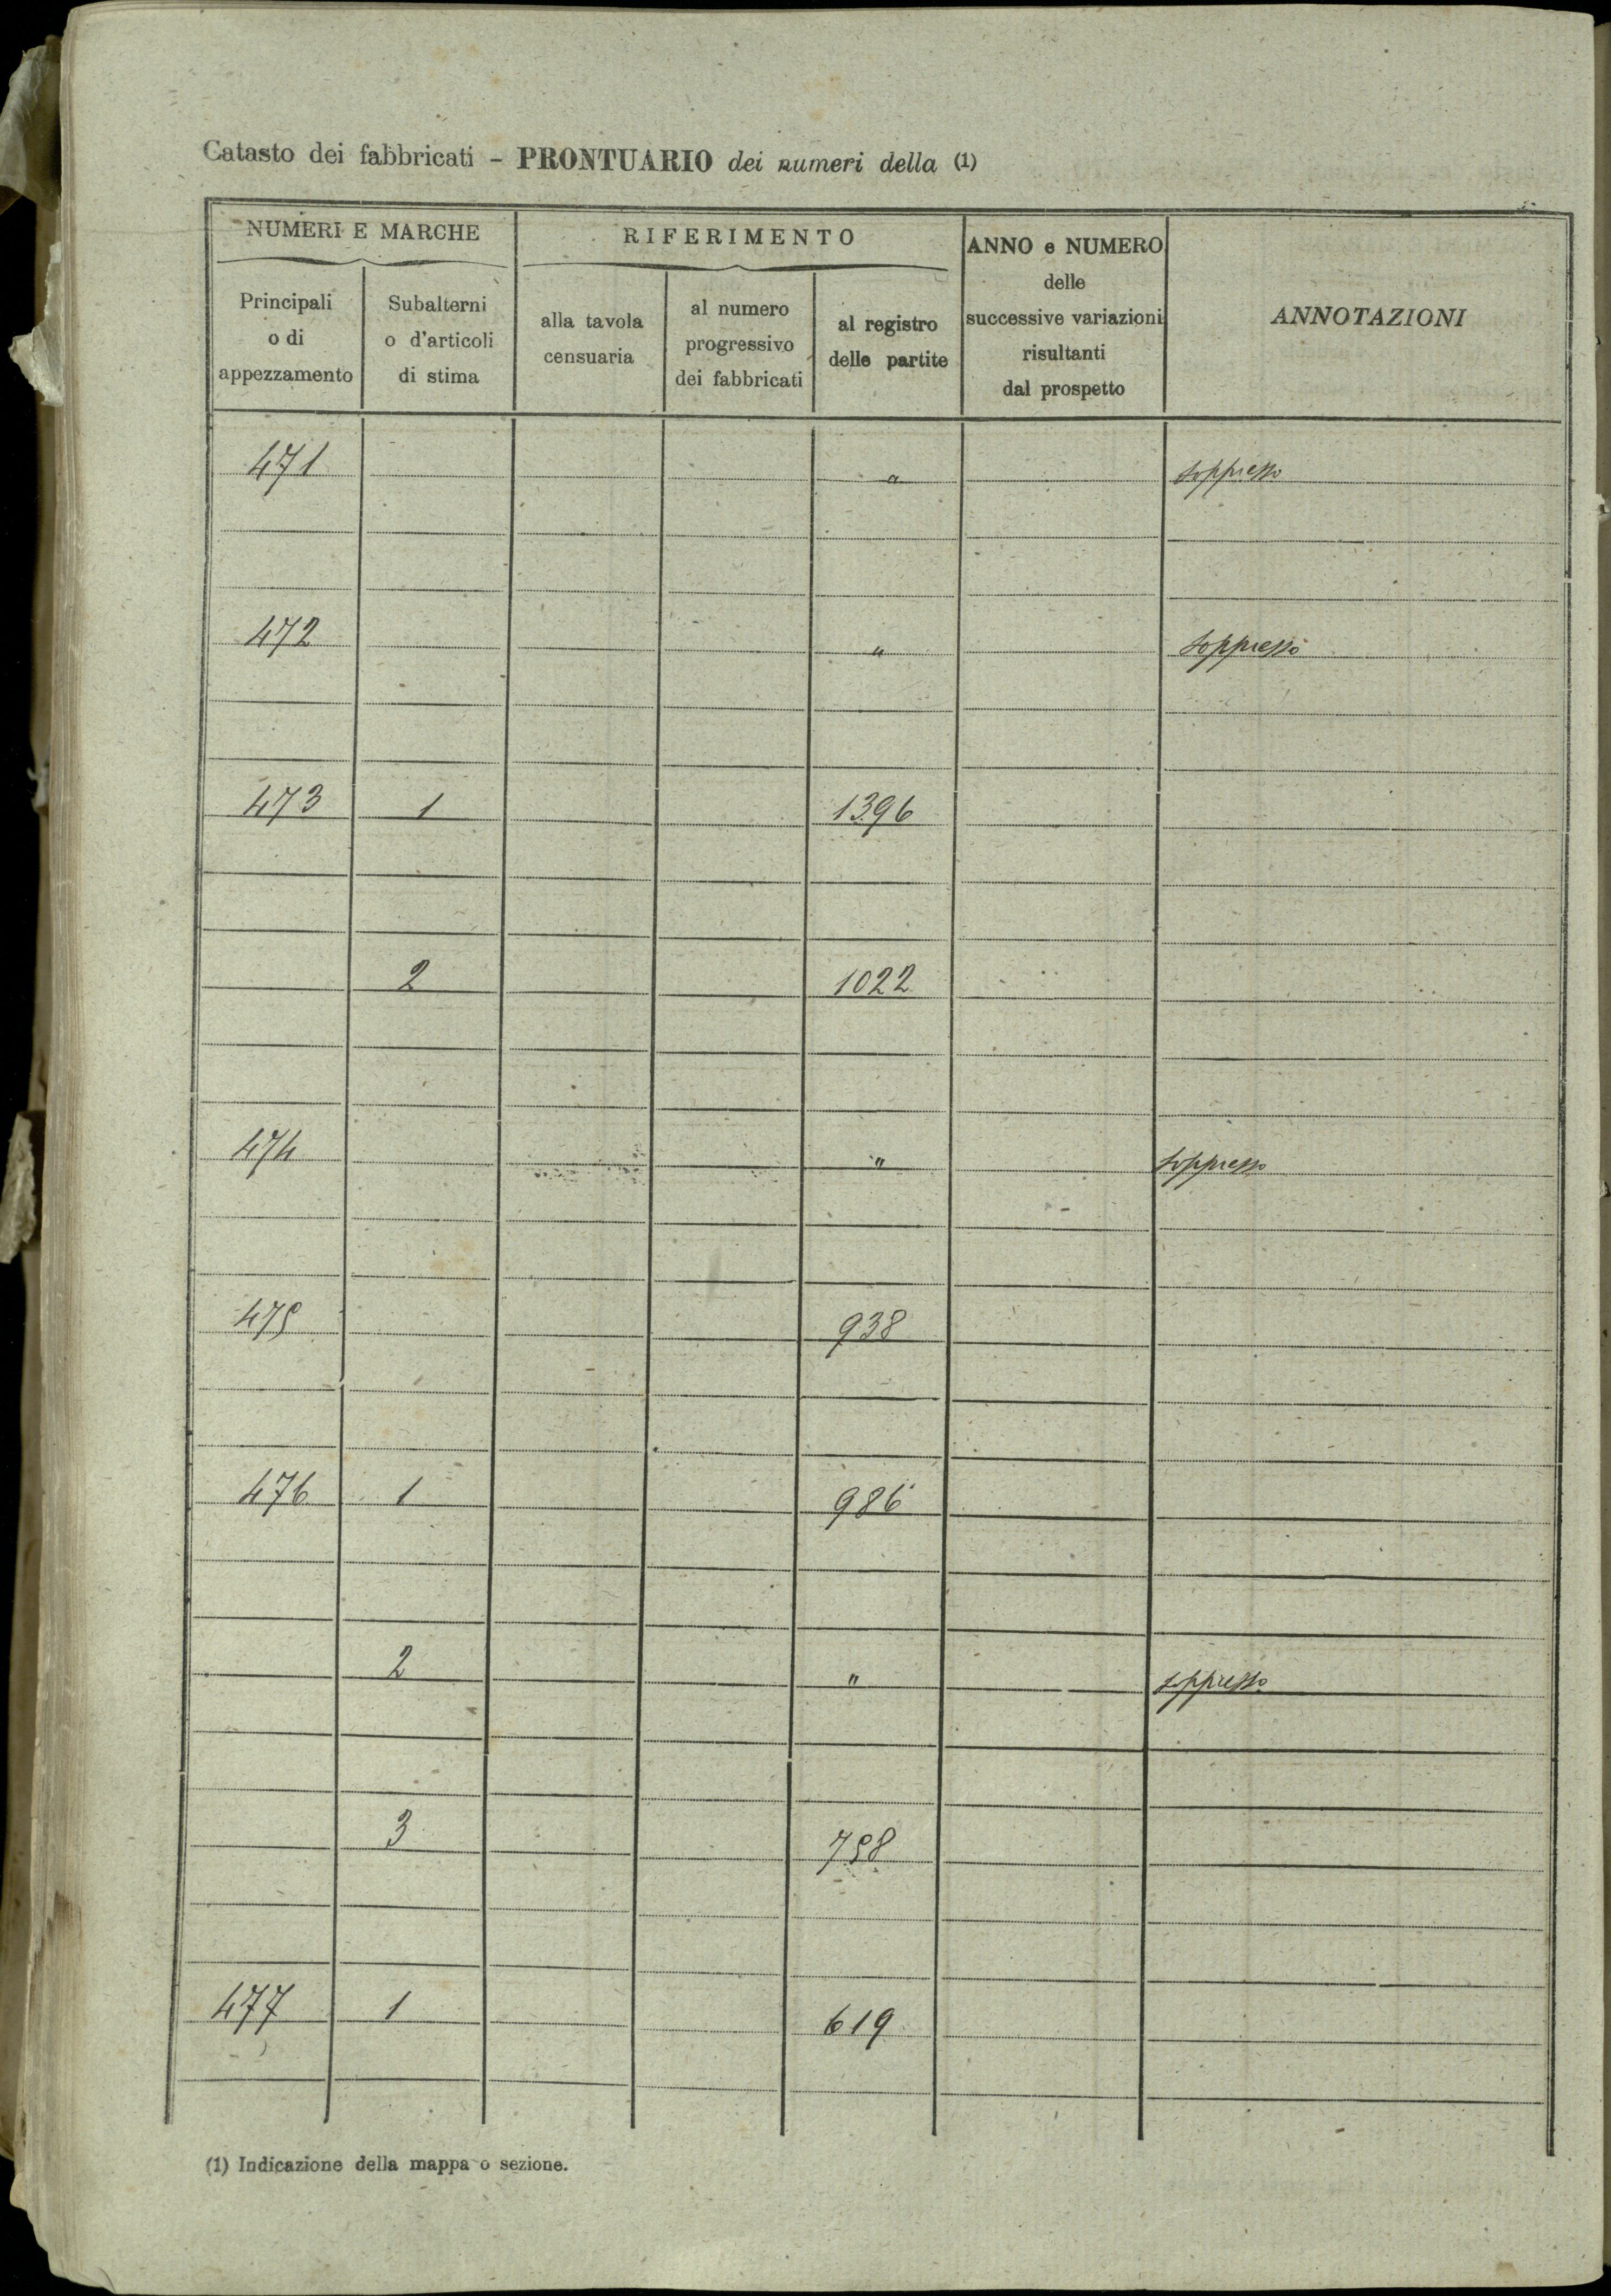 Catasto dei fabbricati - PRONTUARIO dei numeri della (1)
NUMERI E MARCHE
RIFERIMENTO
ANNO e NUMERO
delle
successive variazioni
risultanti
dal prospetto
ANNOTAZIONI
Principali
o di
appezzamento
Subalterni
o d'articoli
di stima
alla tavola
censuaria
al numero
progressivo
dei fabbricati
al registro
delle partite
471 " soppresso
472 " soppresso
473 1 1396
2 1022
474 " soppresso
475 938
476 1 986
2 " soppresso
3 758
477 1 619
(1) Indicazione della mappa o sezione.